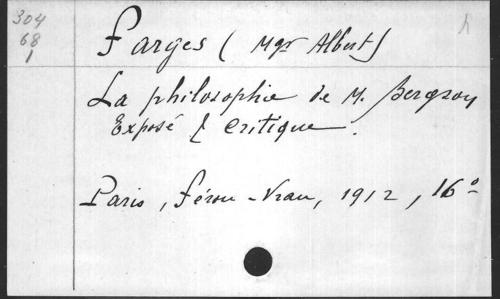 304
68
1
Farges (Mgr Albert)
La philosophie de M. Bergson
Exposé & critique.
Paris, Féron-Vrau, 1912, 16°